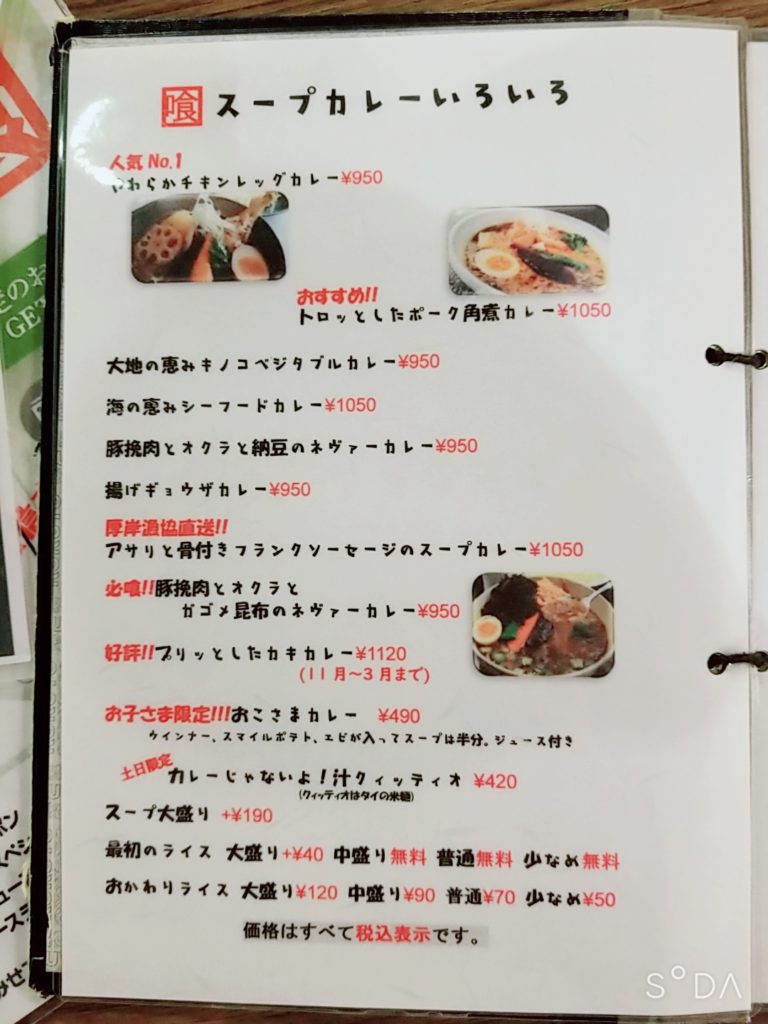 喰 スープカレーいろいろ
人気No.1
やわらかチキンレッグカレー¥950
おすすめ!!
トロッとしたポーク角煮カレー¥1050
大地の恵みキノコベジタブルカレー¥950
海の恵みシーフードカレー¥1050
豚挽肉とオクラと納豆のネヴァーカレー¥950
揚げギョウザカレー¥950
厚岸漁協直送!!
アサリと骨付きフランクソーセージのスープカレー¥1050
必喰!!豚挽肉とオクラと
ガゴメ昆布のネヴァーカレー¥950
好評!!プリッとしたカキカレー¥1120
(11月～3月まで)
お子さま限定!!!おこさまカレー ¥490
ウインナー、スマイルポテト、エビが入ってスープは半分。ジュース付き
土日限定 カレーじゃないよ!汁クィッティオ ¥420
(クィッティオはタイの米麺)
スープ大盛り +¥190
最初のライス 大盛り+¥40 中盛り無料 普通無料 少なめ無料
おかわりライス 大盛り¥120 中盛り¥90 普通¥70 少なめ¥50
価格はすべて税込表示です。
SODA